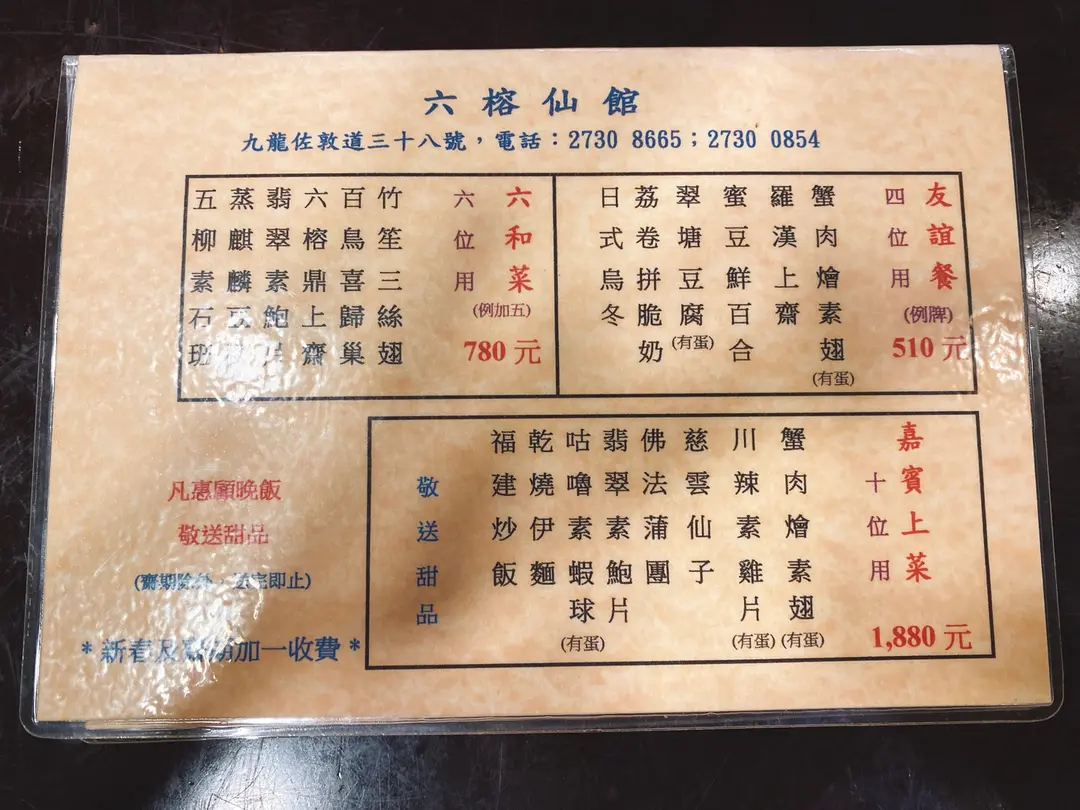 六榕仙館
九龍佐敦道三十八號，電話：2730 8665；2730 0854
友誼餐
四位用
(例牌)
510 元
蟹肉燴素翅
(有蛋)
羅漢上齋
蜜豆鮮百合
翠塘豆腐
(有蛋)
荔卷拼脆奶
日式烏冬
六和菜
六位用
(例加五)
780 元
竹笙三絲翅
百鳥喜歸巢
六榕鼎上齋
翡翠素鮑片
蒸麒麟豆
五柳素石班
嘉賓上菜
十位用
1,880 元
蟹肉燴素翅
(有蛋)
川辣素雞片
(有蛋)
慈雲仙子
佛法蒲團
翡翠素鮑片
咕嚕素蝦球
(有蛋)
乾燒伊麵
福建炒飯
敬送甜品
凡惠顧晚飯
敬送甜品
(齋期除外，送完即止)
* 新春及加一收費 *